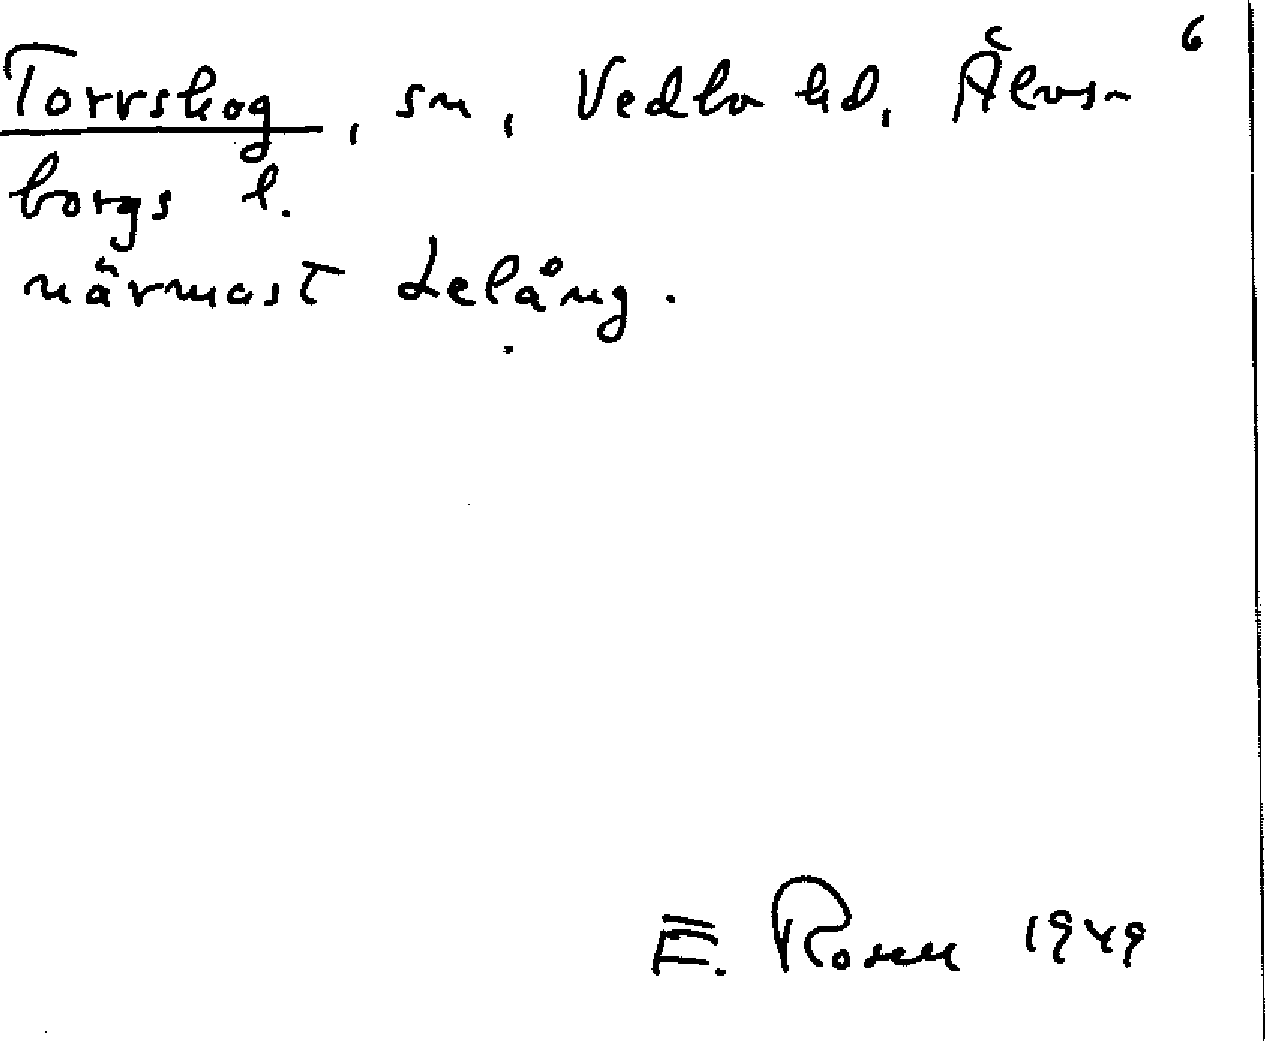 6
Torrskog, sn, Vedbo hd, Älvs-
borgs l.
närmast Lelång.
E. Rosen 1949